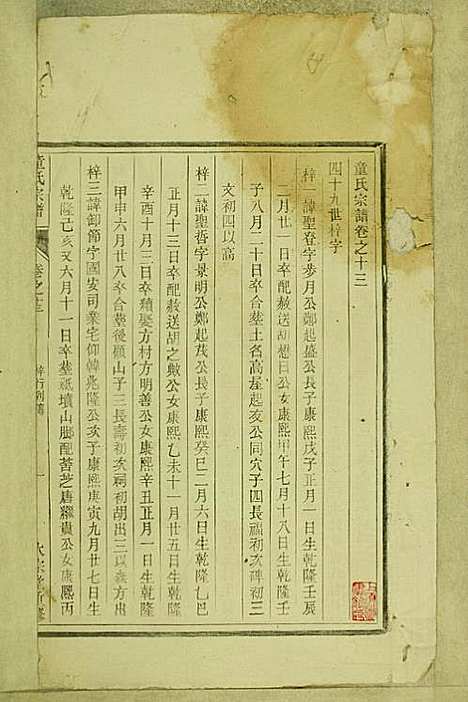 童氏宗譜卷之十三
四十九世梓字
梓一諱聖登字步月公鄭起盛公長子康熙戊子正月一日生乾隆壬辰
二月廿一日卒配赦送胡想日公女康熙甲午七月十八日生乾隆壬
子八月二十日卒合塟土名高屋起亥公同穴子四長福初次碑初三
文初四以高
梓二諱聖哲字景明公鄭起茂公長子康熙癸巳二月六日生乾隆乙巴
正月十三日卒配赦送胡之數公女康熙乙未十一月廿五日生乾隆
辛酉十月三日卒續娶方村方明善公女康熙辛丑正月一日生乾隆
甲申六月廿八卒合塟後嶺山子三長壽初次祠初胡出三以義方出
梓三諱御節字國安司業宅仰韓兆隆公次子康熙庚寅九月廿七日生
乾隆己亥又六月十一日卒塟祇墳山腳配善芝唐繼貴公女康熙丙
童氏宗譜 卷之十三 梓行列傳 一